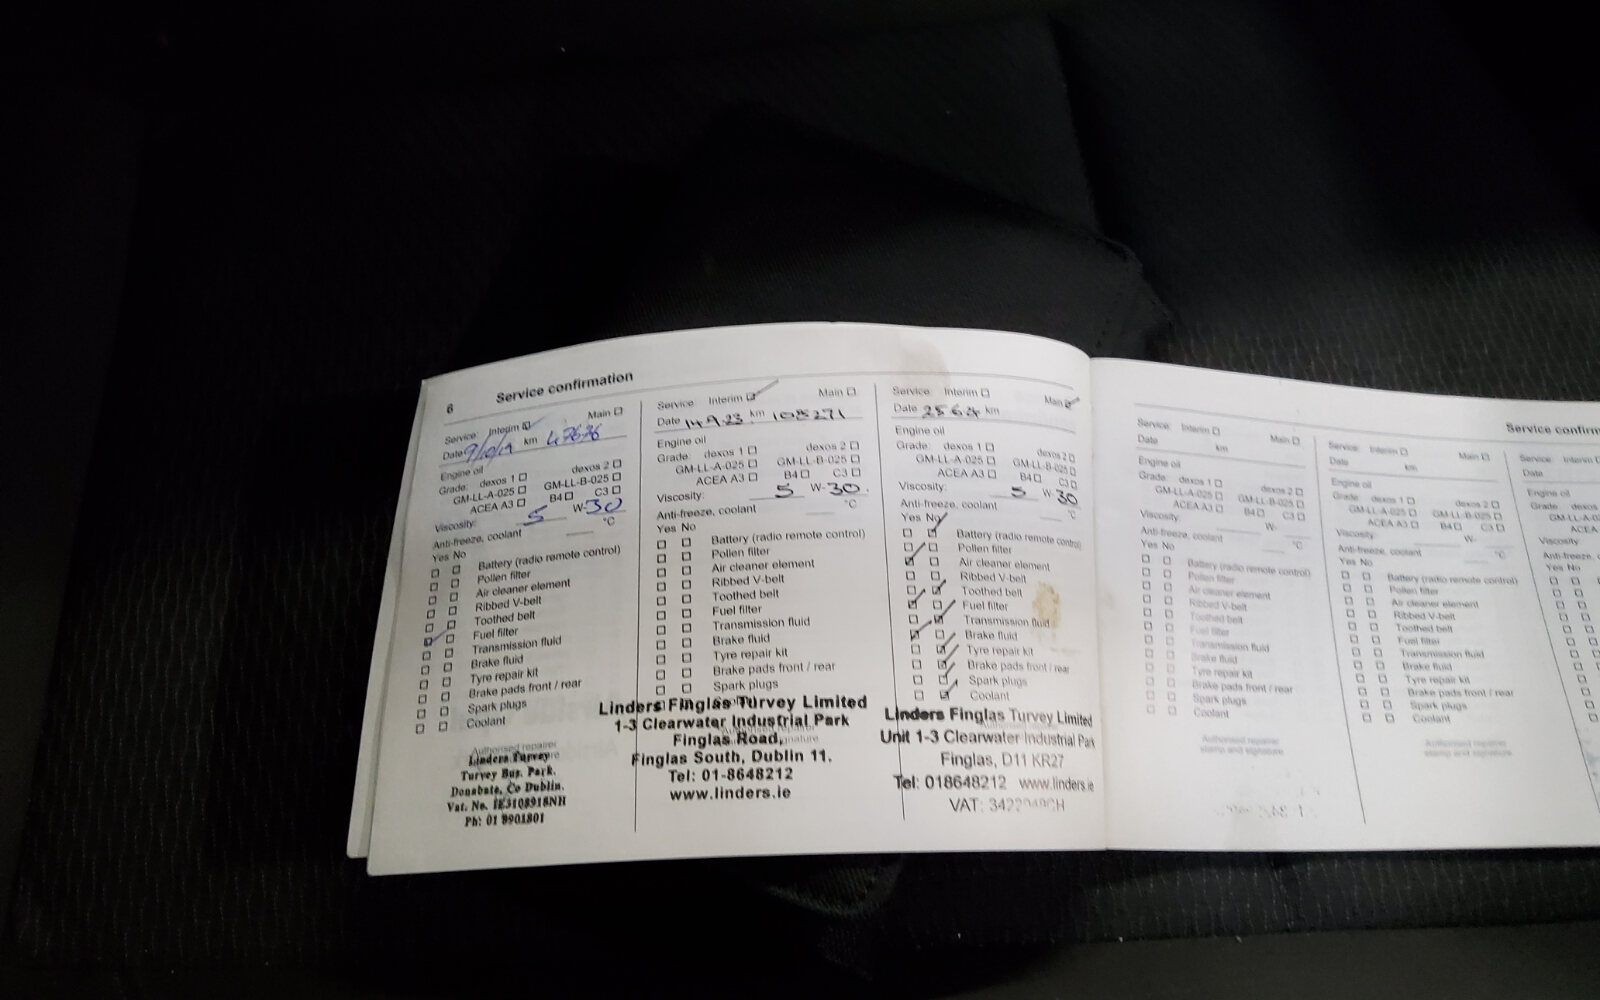 6 Service confirmation
Service: Interim Main
Date 9/10/19 km 47676
Engine oil
Grade: dexos 1 dexos 2
GM-LL-A-025 GM-LL-B-025
ACEA A3 B4 C3
Viscosity: 5 W-30
Anti-freeze, coolant °C
Yes No
Battery (radio remote control)
Pollen filter
Air cleaner element
Ribbed V-belt
Toothed belt
Fuel filter
Transmission fluid
Brake fluid
Tyre repair kit
Brake pads front / rear
Spark plugs
Coolant
Authorised repairer
Linders Turvey
Turvey Bus. Park.
Donabate, Co Dublin.
Vat. No. IE3108918NH
Ph: 01 8901801
Service: Interim Main
Date 14.9.23. km 108271
Engine oil
Grade: dexos 1 dexos 2
GM-LL-A-025 GM-LL-B-025
ACEA A3 B4 C3
Viscosity: 5 W-30.
Anti-freeze, coolant °C
Yes No
Battery (radio remote control)
Pollen filter
Air cleaner element
Ribbed V-belt
Toothed belt
Fuel filter
Transmission fluid
Brake fluid
Tyre repair kit
Brake pads front / rear
Spark plugs
Linders Finglas Turvey Limited
1-3 Clearwater Industrial Park
Finglas Road,
Finglas South, Dublin 11.
Tel: 01-8648212
www.linders.ie
Service: Interim Main
Date km
Engine oil
Grade: dexos 1 dexos 2
GM-LL-A-025 GM-LL-B-025
ACEA A3 B4 C3
Viscosity: 5 W-30
Anti-freeze, coolant °C
Yes No
Battery (radio remote control)
Pollen filter
Air cleaner element
Ribbed V-belt
Toothed belt
Fuel filter
Transmission fluid
Brake fluid
Tyre repair kit
Brake pads front / rear
Spark plugs
Coolant
Linders Finglas Turvey Limited
Unit 1-3 Clearwater Industrial Park
Finglas, D11 KR27
Tel: 018648212 www.linders.ie
VAT:
Service confirm
Service: Interim Main
Date km
Engine oil
Grade: dexos 1 dexos 2
GM-LL-A-025 GM-LL-B-025
ACEA A3 B4 C3
Viscosity: W-
Anti-freeze, coolant °C
Yes No
Battery (radio remote control)
Pollen filter
Air cleaner element
Ribbed V-belt
Toothed belt
Fuel filter
Transmission fluid
Brake fluid
Tyre repair kit
Brake pads front / rear
Spark plugs
Coolant
Authorised repairer
stamp and signature
Service: Interim Main
Date km
Engine oil
Grade: dexos 1 dexos 2
GM-LL-A-025 GM-LL-B-025
ACEA A3 B4 C3
Viscosity: W-
Anti-freeze, coolant °C
Yes No
Battery (radio remote control)
Pollen filter
Air cleaner element
Ribbed V-belt
Toothed belt
Fuel filter
Transmission fluid
Brake fluid
Tyre repair kit
Brake pads front / rear
Spark plugs
Coolant
Authorised repairer
stamp and signature
Service: Interim
Date
Engine oil
Grade: dexos
GM-LL-A-0
ACEA
Viscosity:
Anti-freeze,
Yes No